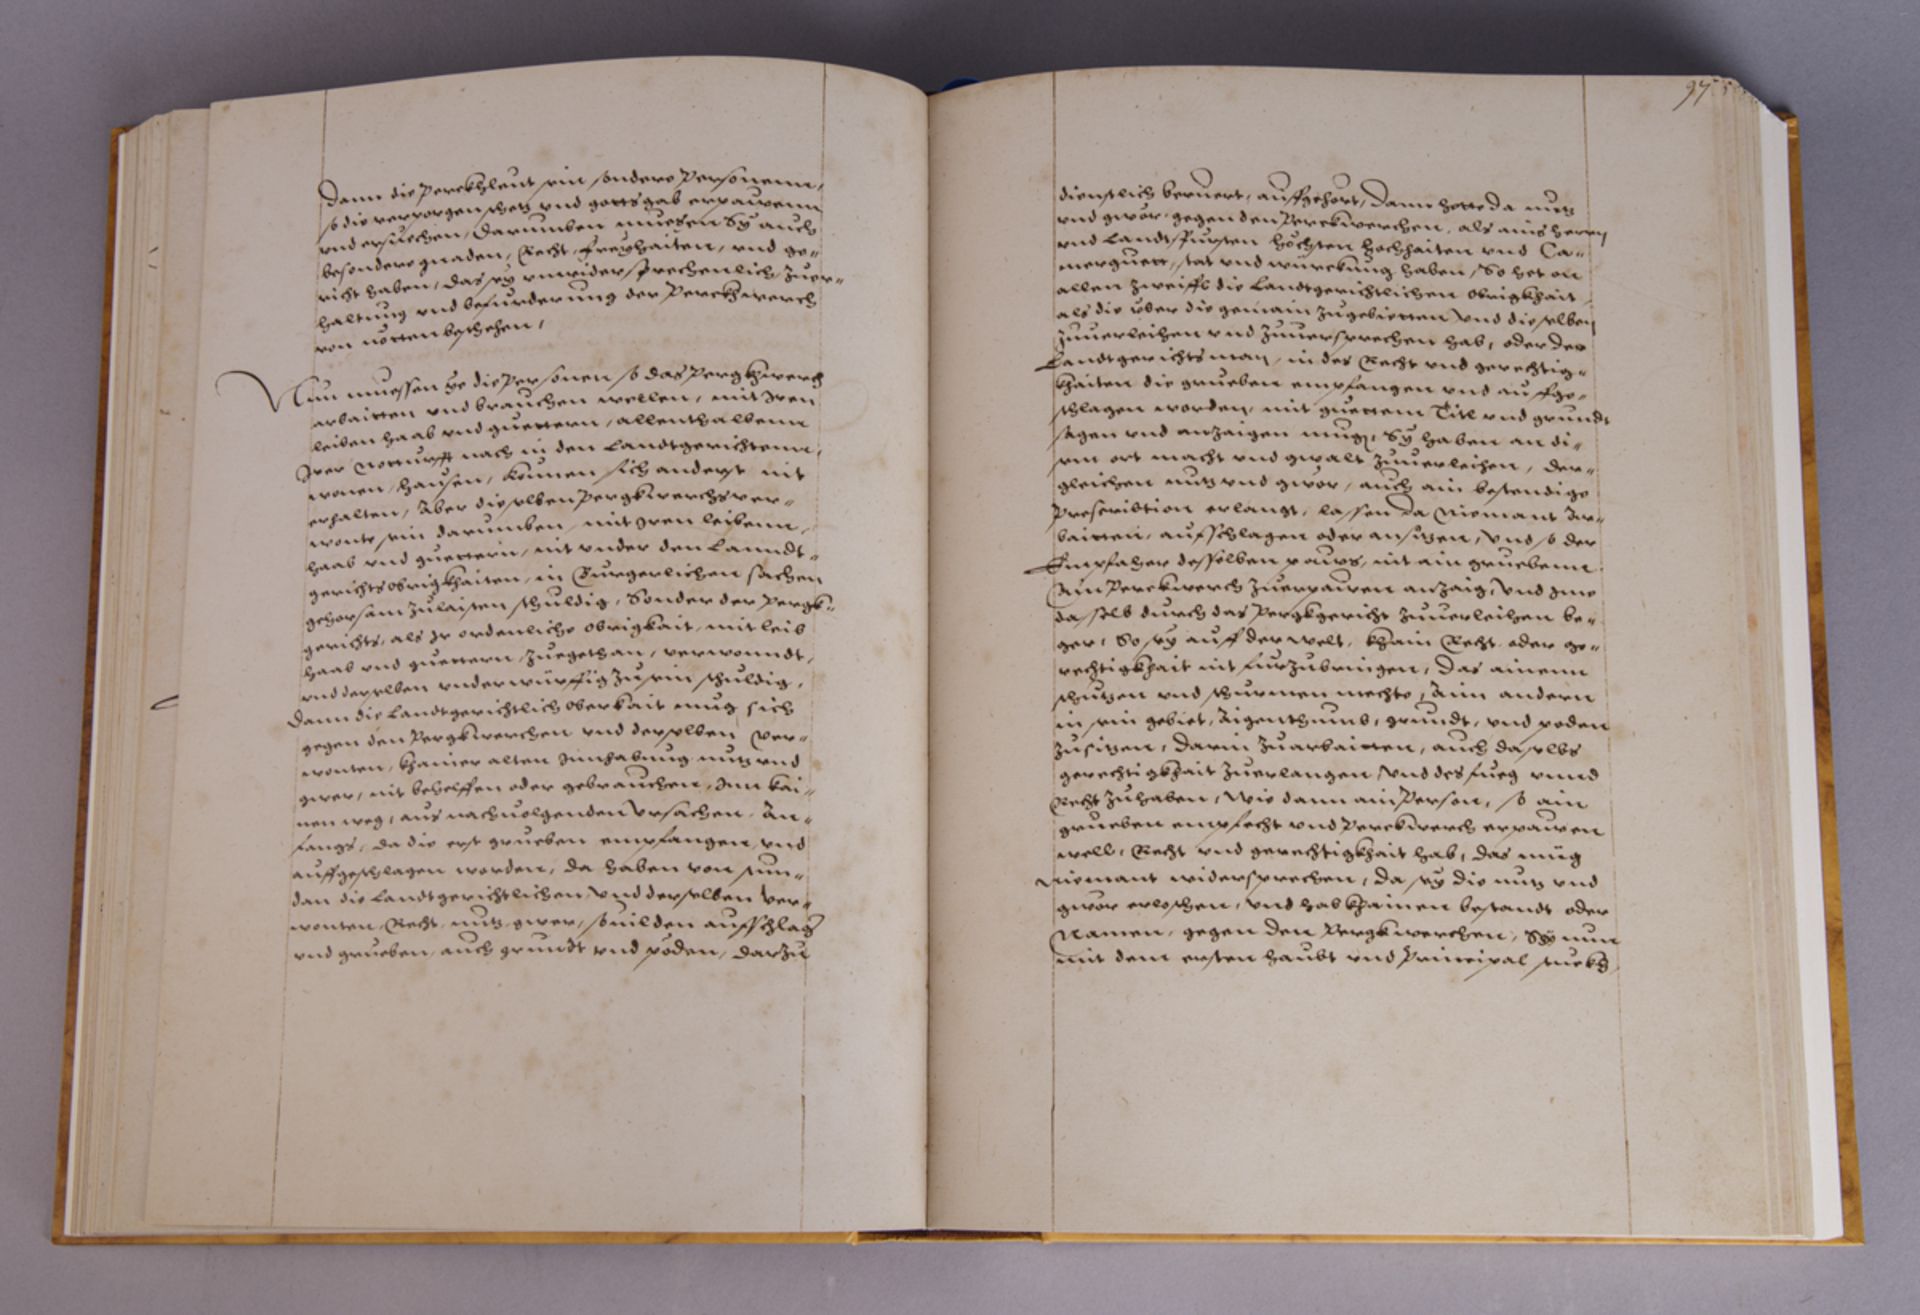 Dann die Perckhleut sein sondere Personenn,
so die verporgen schetz und gottsgab erpauenn
und ersuechen, Darumben muessen Sy auch
besondere gnaden, Recht, freyhaiten, und ge„
richt haben, das sy unwidersprechenlich zuer„
haltung und befurderung der Perckhwerch
von nötten beschehen,
Nun muessen ye die Personen so das Pergkhwerch
arbaitten und brauchen wellen, mit Iren
leiben haab und guettern, allenthalbenn
Irer Notturfft nach in den Landtgerichtenn,
wonen, hausen, können sich anderst nit
erhalten, Aber dieselben Pergkwerchsver„
wonte sein darumben, mit Iren leibenn,
haab und guettern, nit under den Lanndt„
gerichtsobrigkhaiten, in Burgerlichen sachen
gehorsam zulaisten schuldig, Sonder der Pergk„
gerichts, als Ir ordenliche obrigkait, mit leib
haab und guettern, zuegethan, verwonndt,
und derselben underwürffig zu sein schuldig,
Dann die Landtgerichtlich oberkait mug sich
gegen den Pergkwerchen und derselben Ver„
wonten, khainer alten Innhabung nutz und
gwer, nit behelffen oder gebrauchen, Inn kai„
nen weg, aus nachvolgenden Ursachen. An„
fangs, da die erst grueben empfangen, und
auffgeschlagen worden, da haben von stun„
dan die Landtgerichtlichen, und derselben Ver„
wonten, Recht, nutz, gwer, sovil den auffschlag
und grueben, auch grundt und poden, darzu
97
dienstlich beruert, auffgehört, Dann hette da nutz
und gwör, gegen den Perckwerchen, als ains herrn
und Landtsfürsten höchsten hochhaiten und Ca„
merguett, stat und würckung haben, So het on
allen zweiffl die Landtgerichtlichen obrigkhait,
als die über die gemain zugebietten, und dieselben
zuverleihen und zuversprechen hab, oder der
Landtgerichtsman, in des Recht und gerechtig„
khaiten die grueben empfangen und auffge„
schlagen worden, mit guettem Titl und grundt
sagen und anzaigen mugn, Sy haben an di„
sem ort macht und gwalt zuverleihen, der„
gleichen nutz und gwör, auch ain bestendige
Prescribtion erlangt, lassen da Niemant Ar„
baitten, auffschlagen oder ansitzen, und so der
Empfaher desselben paues, nit ain gruebenn
Ain Perckwerch zuerpauen anzaig, und Ime
daselb durch das Pergkgericht zuverleihen be„
ger, So sey auff der welt, khain Recht oder ge„
rechtigkhait nit furzubringen, das ainenn
schutzen und schurmen mechte, Ainn andern
in sein gebiet, Aigenthumb, grundt, und poden
zusitzen, darin zuarbaitten, auch daselbs
gerechtigkhait zuerlangen, und des fueg unnd
Recht zuhaben, Wie dann ain Person, so ain
grueben empfecht und Perckwerch erpauen
well, Recht und gerechtigkhait hab, das müg
Niemant widersprechen, da sey die nutz und
gwör erloschen, und hab khainen bestandt oder
Namen, gegen den Pergkwerchen, Sey nun
mit dem ersten haubt und Principal stuckh,